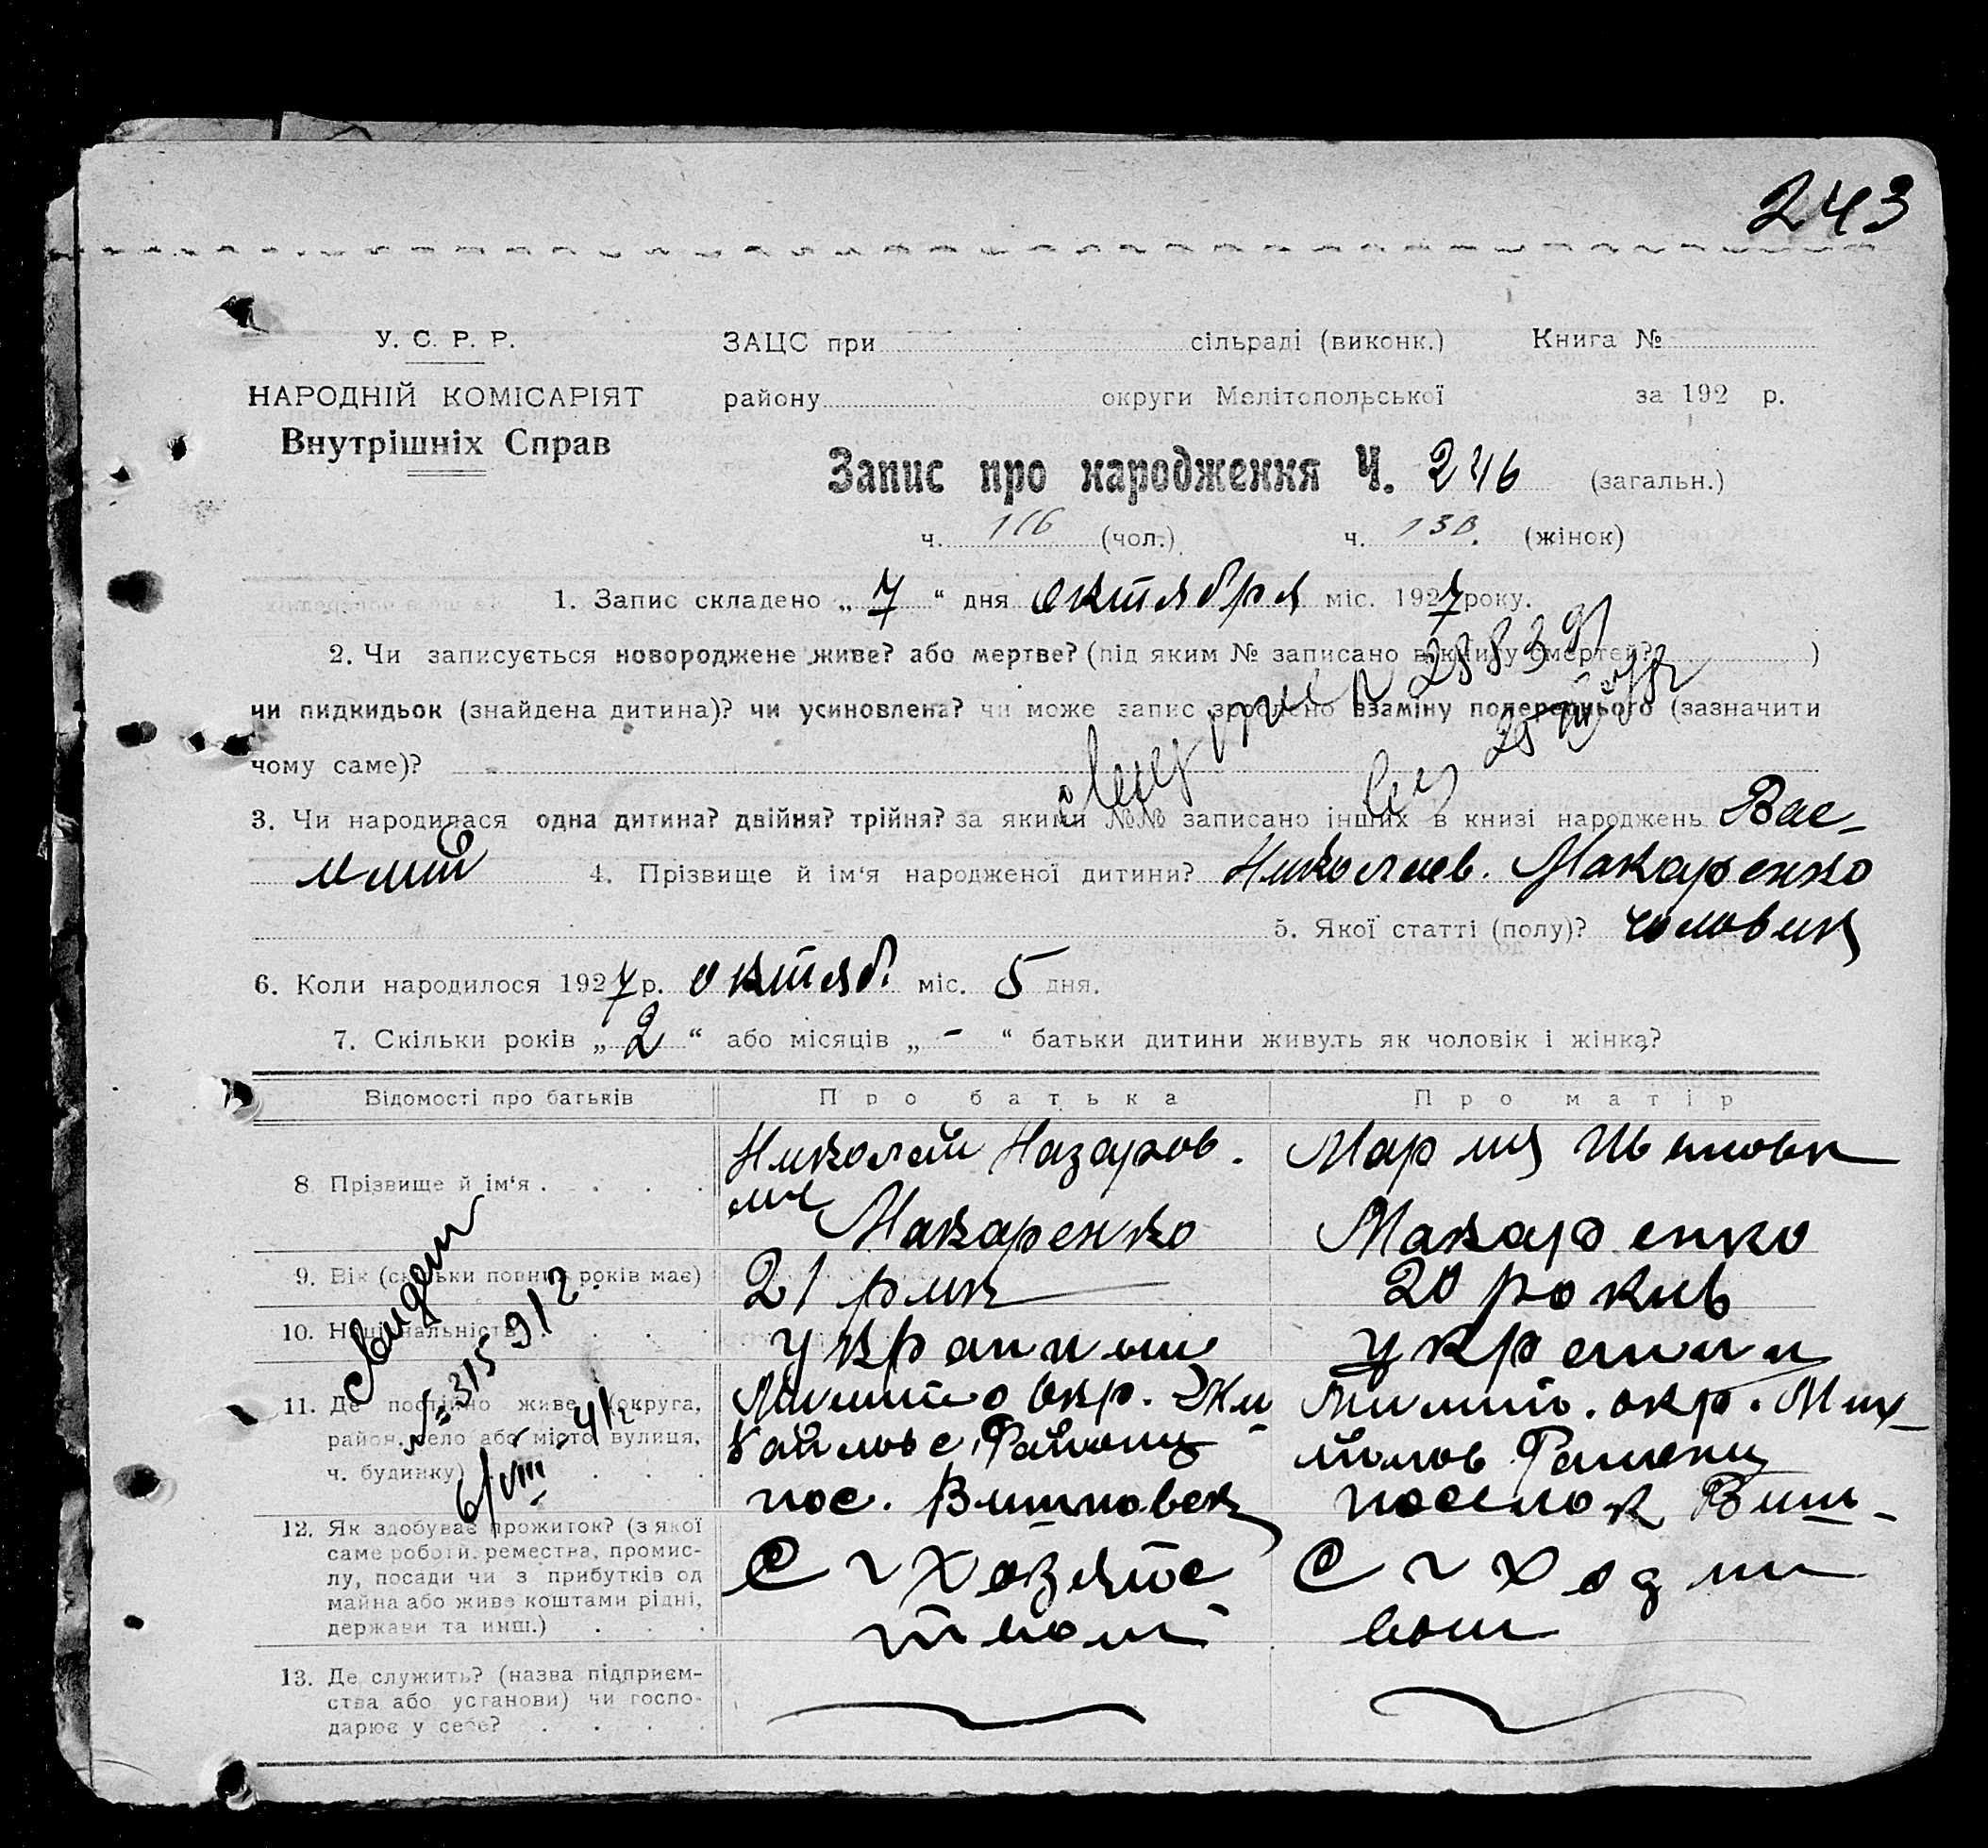 243
У. С. Р. Р. ЗАЦС при сільраді (виконк.) Книга №
НАРОДНІЙ КОМІСАРІЯТ району округи Мелітопольської за 192 р.
Внутрішніх Справ
Запис про народження Ч. 246 (загальн.)
ч. 116 (чол.) ч. 130. (жінок)
1. Запис складено „ 7 “ дня октября міс. 1927 року.
2. Чи записується новороджене живе? або мертве? (під яким № записано в книгу смертей? )
чи пидкидьок (знайдена дитина)? чи усиновлена? чи може запис зроблено взаміну попереднього (зазначити
чому саме)?
3. Чи народилася одна дитина? двійня? трійня? за якими №№ записано інших в книзі народжень Вас-
илий 4. Прізвище й ім'я народженої дитини? Николаев. Макаренко
5. Якої статті (полу)? чоловик
6. Коли народилося 1927 р. октяб. міс. 5 дня.
7. Скільки років „ 2 “ або місяців „ - “ батьки дитини живуть як чоловік і жінка?
Відомості про батьків Про батька Про матір
8 Прізвище й ім'я . . . . Николай Назаров. Мария
ич Макаренко Макаренко
9. Вік (скільки повних років має) 21 рик 20 рокив
10. Національність . . . .
11. Де постійно живе (округа, окр. окр. Мих-
район, село або місто, вулиця,
ч. будинку) . . . . пос. поселок Виш-
12. Як здобуває прожиток? (з якої
саме роботи, ремества, промис-
лу, посади чи з прибутків од
майна або живе коштами рідні,
держави та инш.) . . .
13. Де служить? (назва підприєм-
ства або установи) чи госпо-
дарює у себе? . . . .
№ 315912
6/VIII - 41